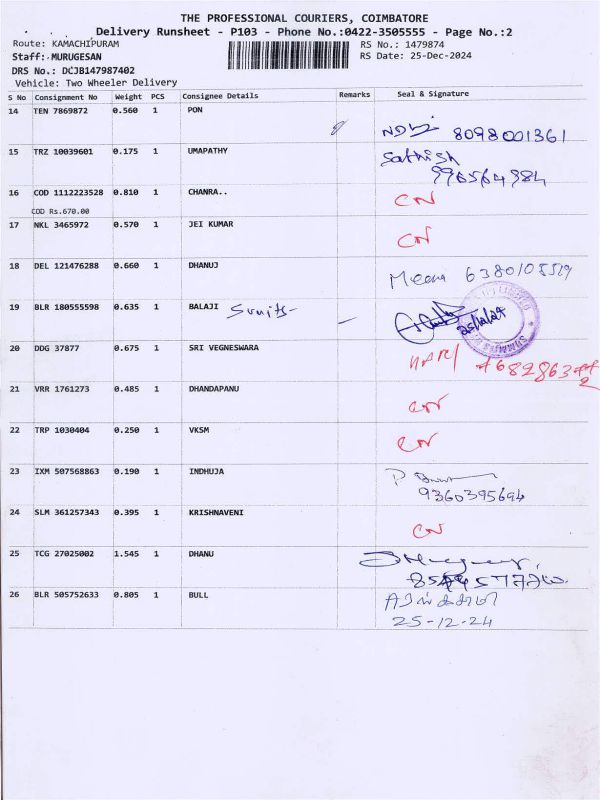 THE PROFESSIONAL COURIERS, COIMBATORE
Delivery Runsheet - P103 - Phone No.:0422-3505555 - Page No.:2
Route: KAMACHIPURAM RS No.: 1479874
Staff: MURUGESAN RS Date: 25-Dec-2024
DRS No.: DCJB147987402
Vehicle: Two Wheeler Delivery
S No Consignment No Weight PCS Consignee Details Remarks Seal & Signature
14 TEN 7869872 0.560 1 PON
8098001361
15 TRZ 10039601 0.175 1 UMAPATHY Sathish
996564984
16 COD 1112223528 0.810 1 CHANRA.. CN
COD Rs.670.00
17 NKL 3465972 0.570 1 JEI KUMAR
CN
18 DEL 121476288 0.660 1 DHANUJ
Meena
19 BLR 180555598 0.635 1 BALAJI
25/12/24
20 DDG 37877 0.675 1 SRI VEGNESWARA
HARI
21 VRR 1761273 0.485 1 DHANDAPANU
CN
22 TRP 1030404 0.250 1 VKSM
CN
23 IXM 507568863 0.190 1 INDHUJA
9360395694
24 SLM 361257343 0.395 1 KRISHNAVENI
CN
25 TCG 27025002 1.545 1 DHANU
26 BLR 505752633 0.805 1 BULL
25-12-24